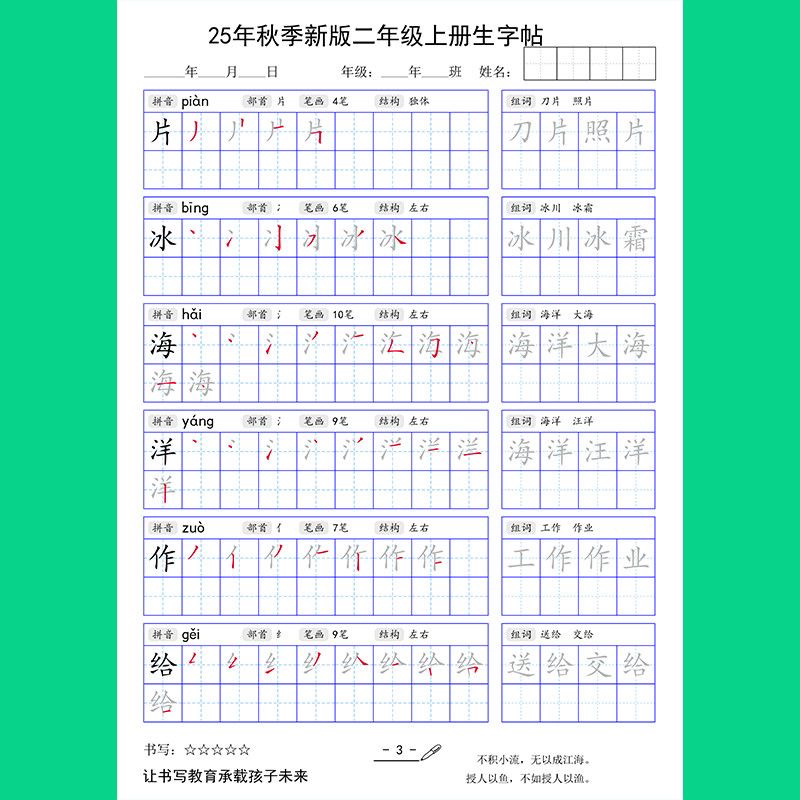 25年秋季新版二年级上册生字帖
____年____月____日 年级：____年____班 姓名：
拼音 piàn 部首 片 笔画 4笔 结构 独体 组词 刀片 照片
片 刀 片 照 片
拼音 bīng 部首 冫 笔画 6笔 结构 左右 组词 冰川 冰霜
冰 冰 川 冰 霜
拼音 hǎi 部首 氵 笔画 10笔 结构 左右 组词 海洋 大海
海 海 洋 大 海
海 海
拼音 yáng 部首 氵 笔画 9笔 结构 左右 组词 海洋 汪洋
洋 海 洋 汪 洋
洋
拼音 zuò 部首 亻 笔画 7笔 结构 左右 组词 工作 作业
作 工 作 作 业
拼音 gěi 部首 纟 笔画 9笔 结构 左右 组词 送给 交给
给 送 给 交 给
给
书写：☆☆☆☆☆
- 3 -
不积小流，无以成江海。
让书写教育承载孩子未来
授人以鱼，不如授人以渔。